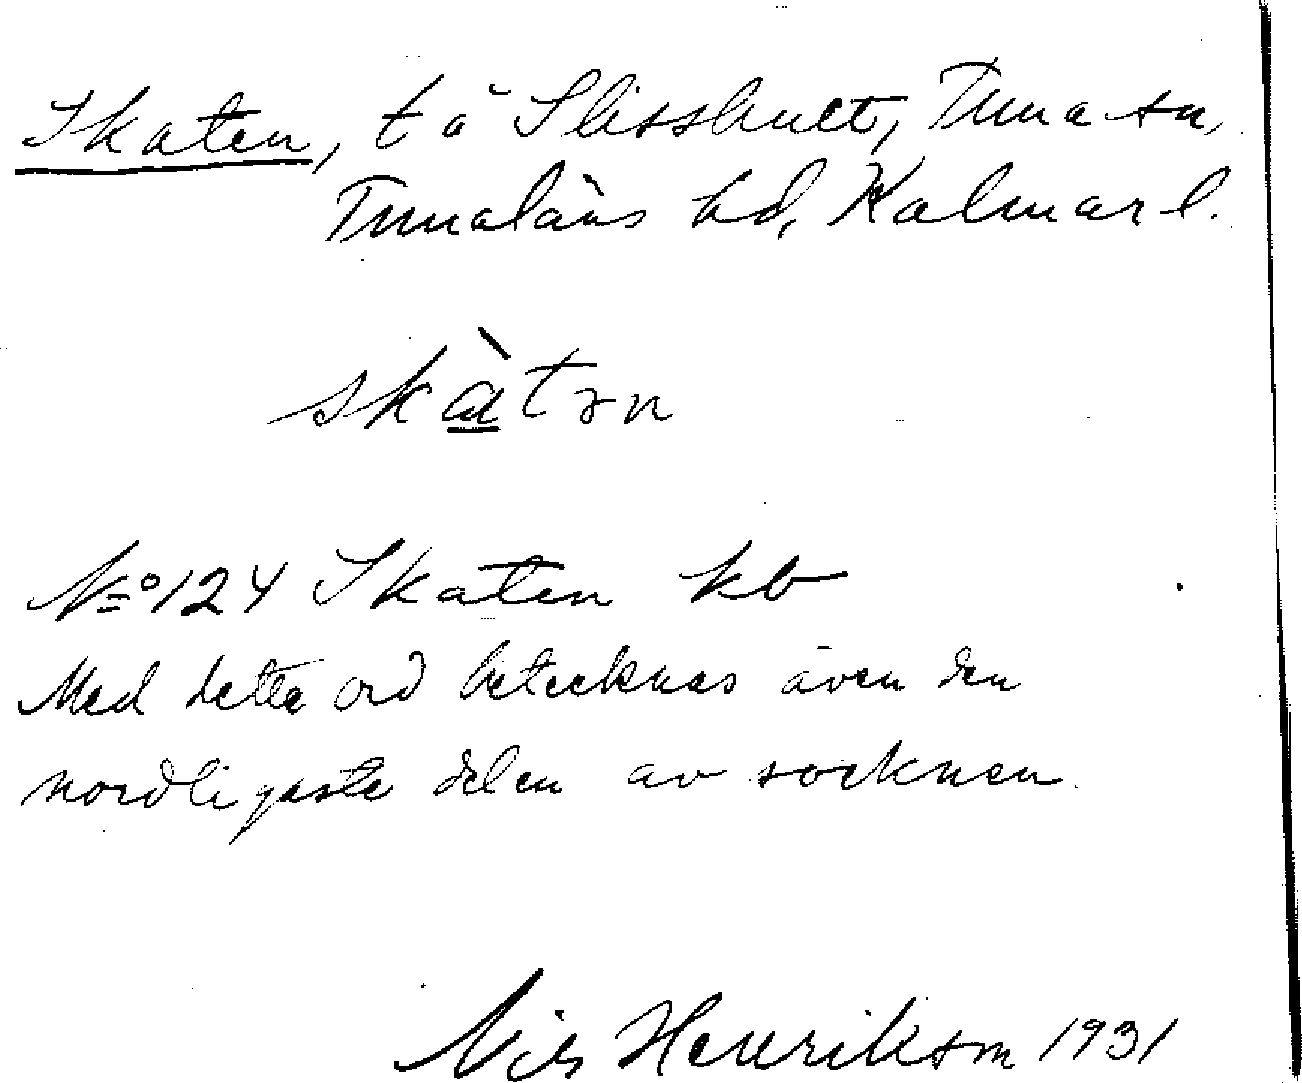 Skaten, t å Slisshult, Tuna sn,
Tunaläns hd, Kalmar l.
skàtən
No 124 Skaten kb
Med detta ord betecknas även den
nordligaste delen av socknen.
Nils Henrikson 1931